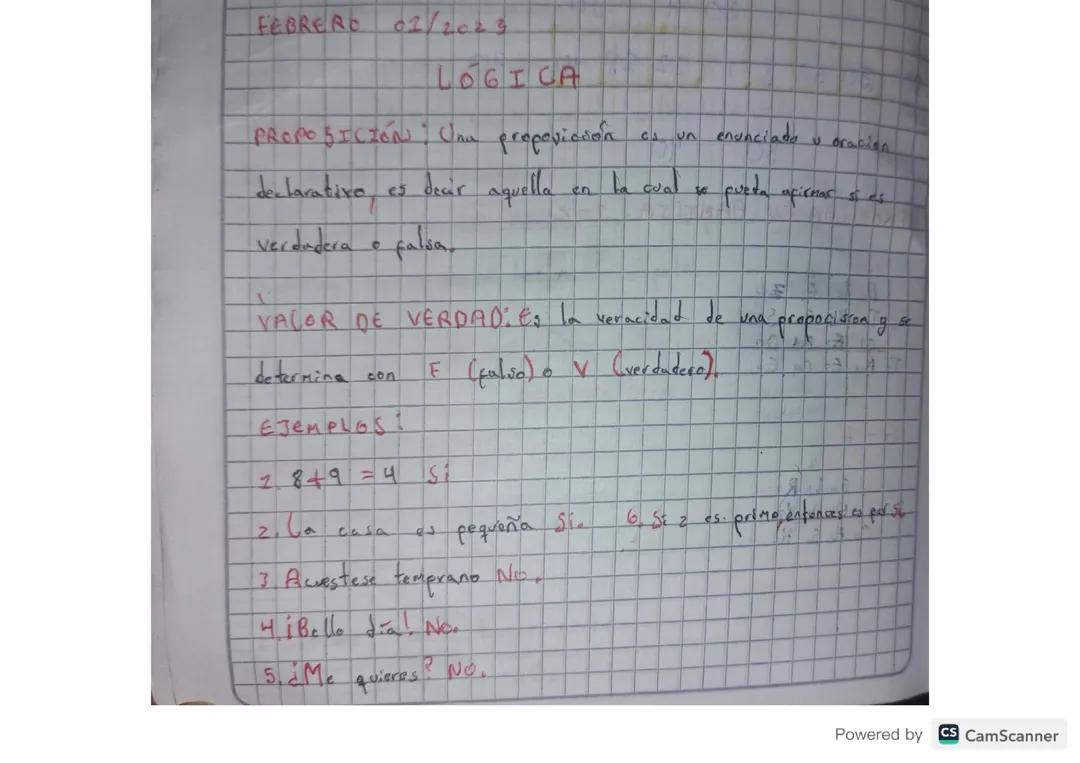 FEBRERO 02/2023
LÓGICA
PROPOSICIÓN: Una proposición es un enunciado u oración
declarativo, es decir aquella en la cual se pueda afirmar si es
verdadera o falsa.
VALOR DE VERDAD: Es la veracidad de una proposición y se
determina con F (falso) o V (verdadero).
EJEMPLOS:
1. 8+9 = 4 Si
2. La casa es pequeña Si. 6. Si 2 es primo, entonces es par Si
3 Acuestese temprano No.
4. ¡Bello día! No.
5. ¿Me quieres? No.
Powered by CS CamScanner